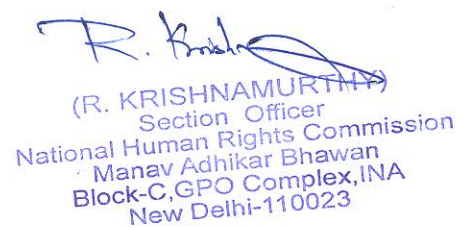 R. Krishna
(R. KRISHNAMURTHY)
Section Officer
National Human Rights Commission
Manav Adhikar Bhawan
Block-C,GPO Complex,INA
New Delhi-110023